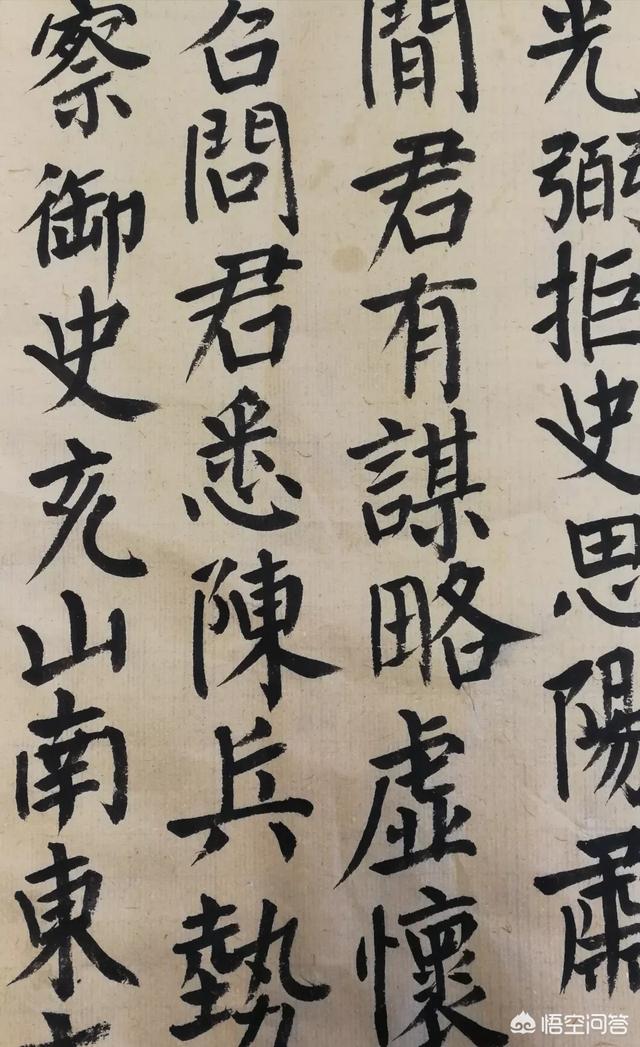 光弼拒史思陽肅
間君有謀略虛懷
召問君悉陳兵勢
察御史充山南東
悟空问答